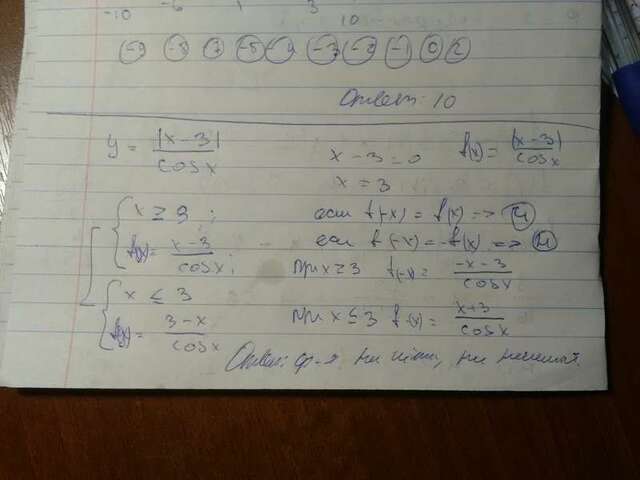 -10 -6 1 3
10
-9 -8 7 -5 -3 -2 -1 0 2
Ответ: 10
y = |x-3|/cosx
x - 3 = 0 f(x) = |x-3|/cosx
x = 3
x ≥ 3; если f(-x) = f(x) => Ч
f(x) = x-3/cosx; если f(-x) = -f(x) => Н
при x ≥ 3 f(-x) = -x-3/cosx
x ≤ 3
f(x) = 3-x/cosx при x ≤ 3 f(-x) = x+3/cosx
Ответ: ф-я ни чётн, ни нечетная.